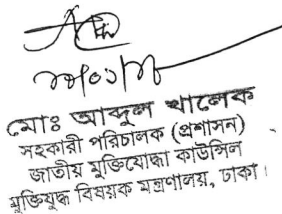 মোঃ আব্দুল খালেক
সহকারী পরিচালক (প্রশাসন)
জাতীয় মুক্তিযোদ্ধা কাউন্সিল
মুক্তিযুদ্ধ বিষয়ক মন্ত্রণালয়, ঢাকা।